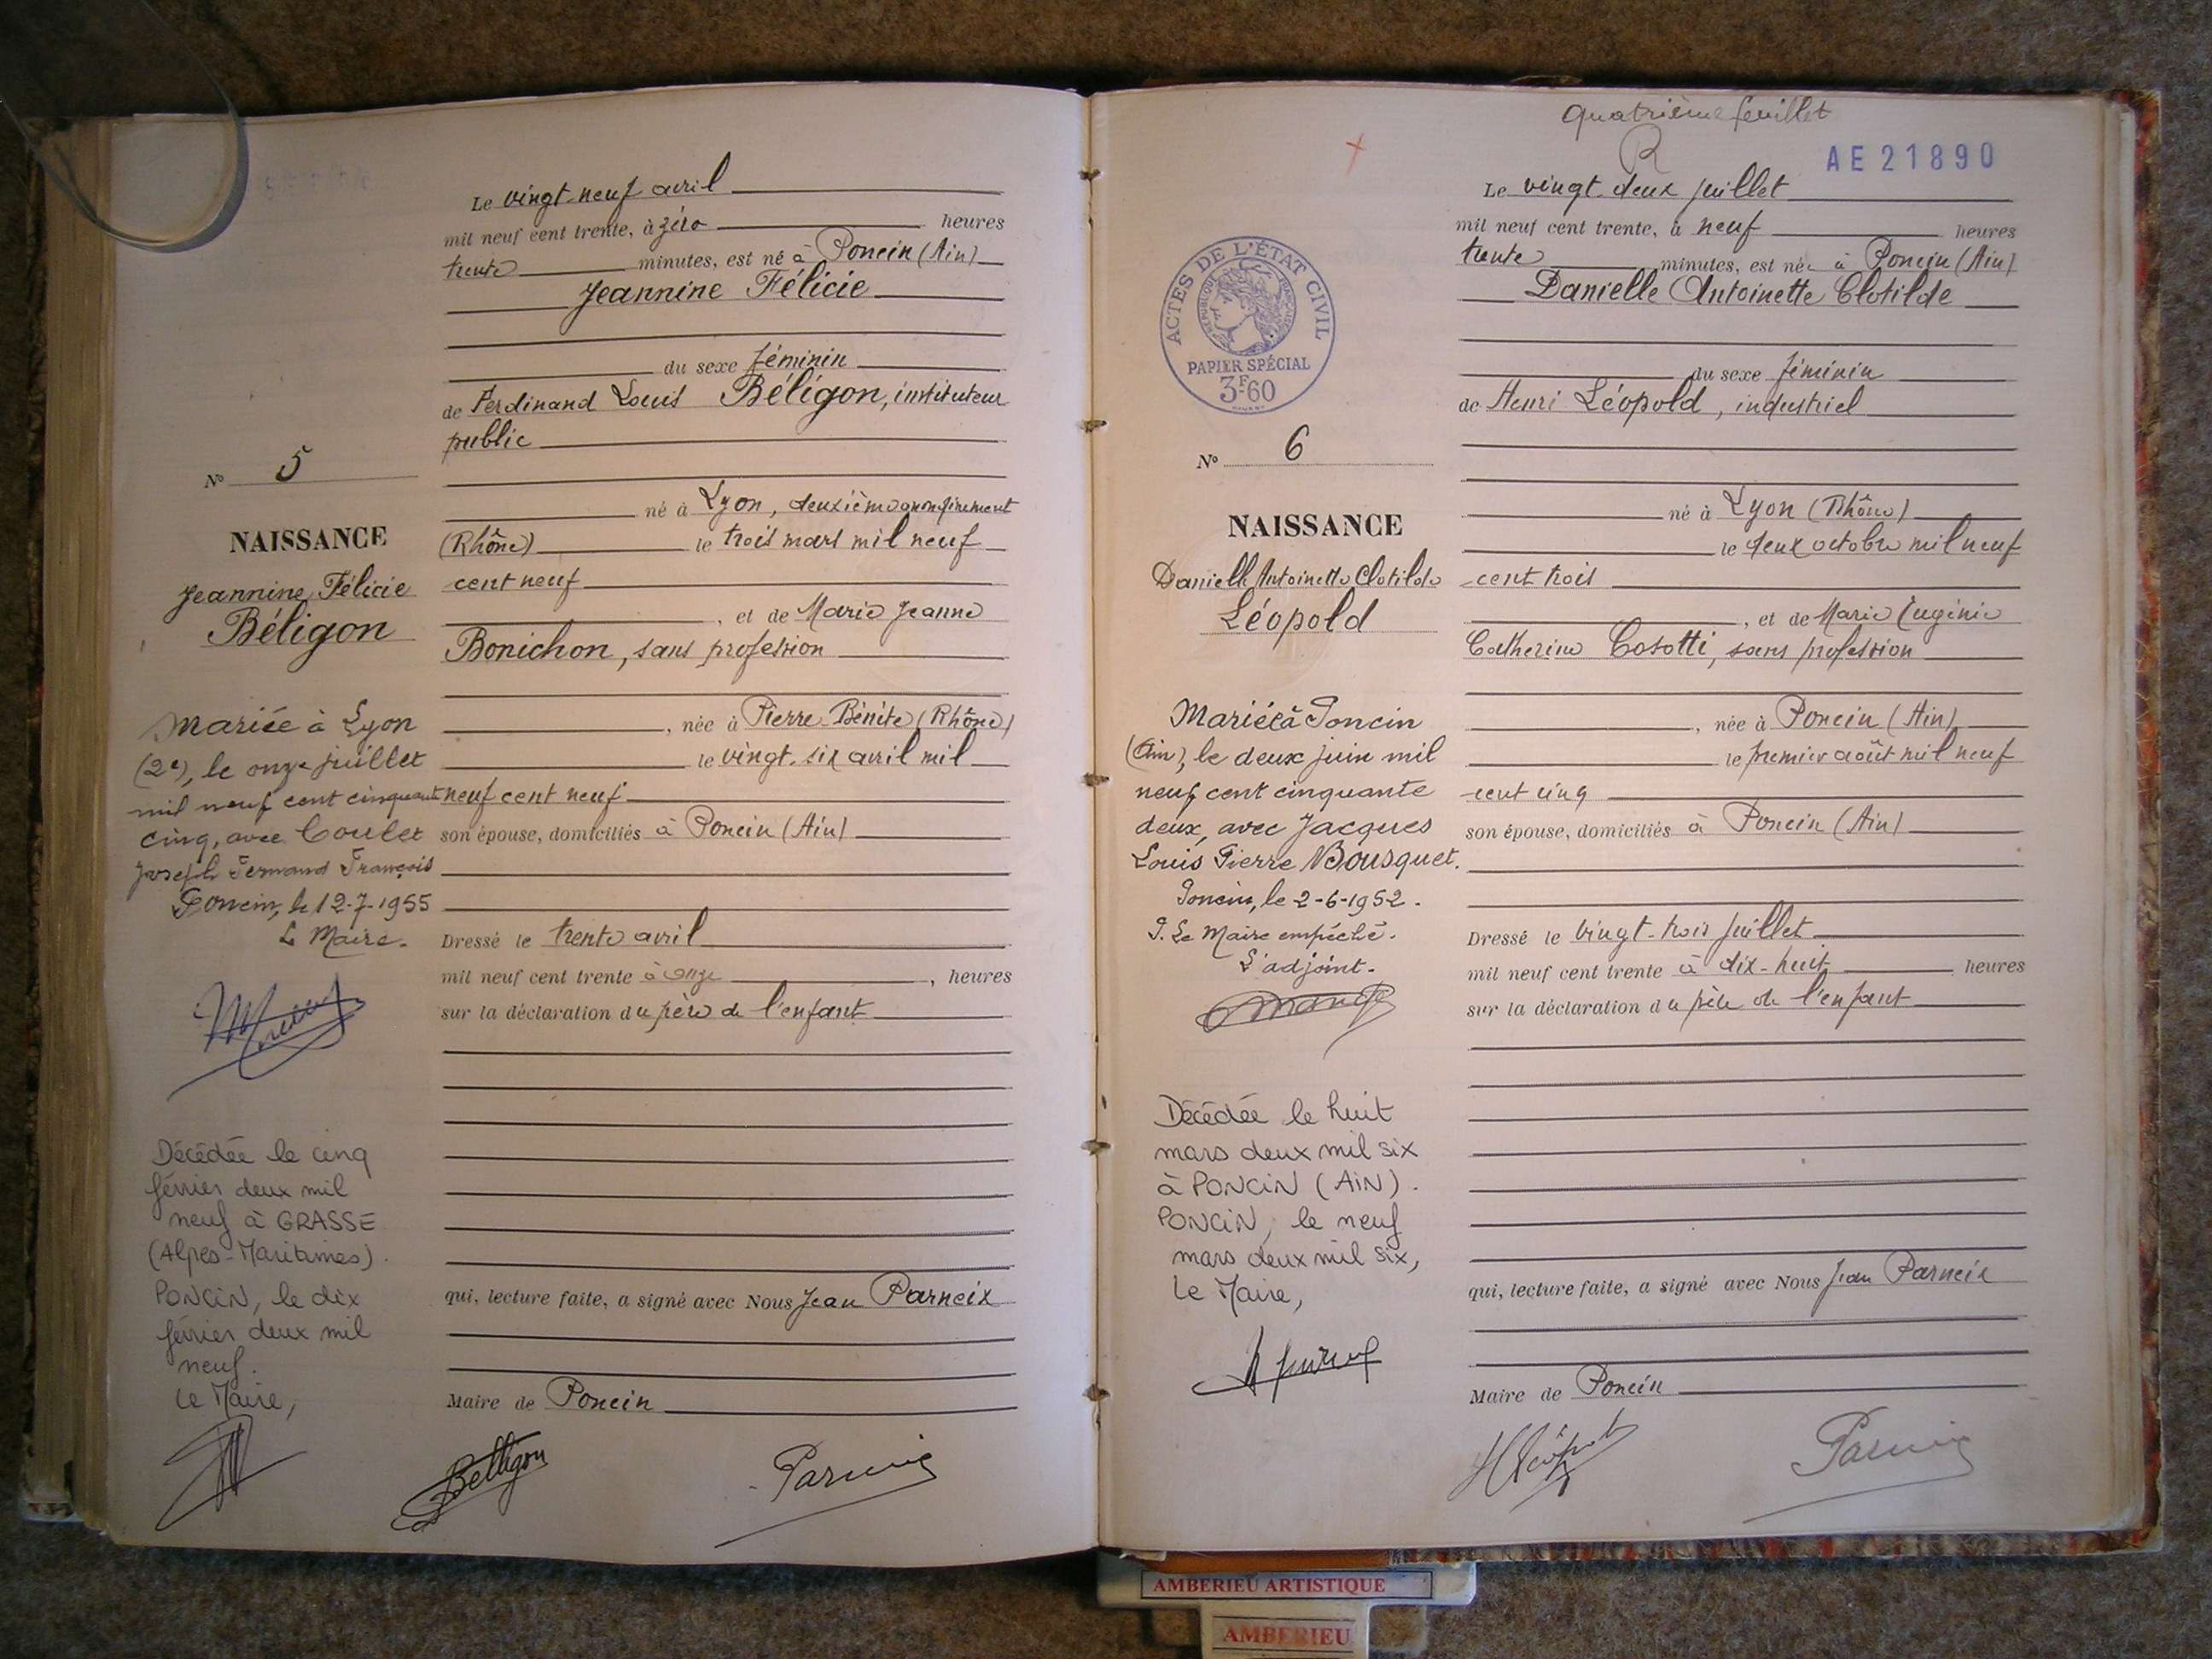 Le vingt-neuf avril
mil neuf cent trente, à zéro heures
trente minutes, est né à Poncin (Ain)
Jeannine Félicie
du sexe féminin
de Ferdinand Louis Béligon, instituteur
public
né à Lyon, deuxième arrondissement
(Rhône) le trois mars mil neuf
cent neuf
, et de Marie Jeanne
Bonichon, sans profession
, née à Pierre-Bénite (Rhône)
le vingt-six avril mil
neuf cent neuf
son épouse, domiciliés à Poncin (Ain)
Dressé le trente avril
mil neuf cent trente à onze, heures
sur la déclaration du père de l'enfant
qui, lecture faite, a signé avec Nous Jean Parneix
Maire de Poncin
Belligon
Parneix
N° 5
NAISSANCE
Jeannine Félicie
Béligon
Mariée à Lyon
(2e), le onze juillet
mil neuf cent cinquante
cinq, avec Coulet
Joseph Fernand François
Poncin, le 12-7-1955
Le Maire.
Décédée le cinq
février deux mil
neuf à GRASSE
(Alpes-Maritimes).
PONCIN, le dix
février deux mil
neuf.
Le Maire,
quatrième feuillet
R
AE 21890
Le vingt-deux juillet
mil neuf cent trente, à neuf heures
trente minutes, est née à Poncin (Ain)
Danielle Antoinette Clotilde
du sexe féminin
de Henri Léopold, industriel
né à Lyon (Rhône)
le deux octobre mil neuf
cent trois
, et de Marie Eugénie
Catherine Cosotti, sans profession
, née à Poncin (Ain)
le premier août mil neuf
cent cinq
son épouse, domiciliés à Poncin (Ain)
Dressé le vingt-trois juillet
mil neuf cent trente à dix-huit heures
sur la déclaration du père de l'enfant
qui, lecture faite, a signé avec Nous Jean Parneix
Maire de Poncin
HLéopold
Parneix
ACTES DE L'ÉTAT CIVIL
RÉPUBLIQUE FRANÇAISE
PAPIER SPÉCIAL
3F60
N° 6
NAISSANCE
Danielle Antoinette Clotilde
Léopold
Mariée à Poncin
(Ain), le deux juin mil
neuf cent cinquante
deux, avec Jacques
Louis Pierre Bousquet.
Poncin, le 2-6-1952.
P. Le Maire empêché.
L'adjoint.
Décédée le huit
mars deux mil six
à PONCIN (AIN).
PONCIN, le neuf
mars deux mil six,
Le Maire,
AMBERIEU ARTISTIQUE
AMBERIEU